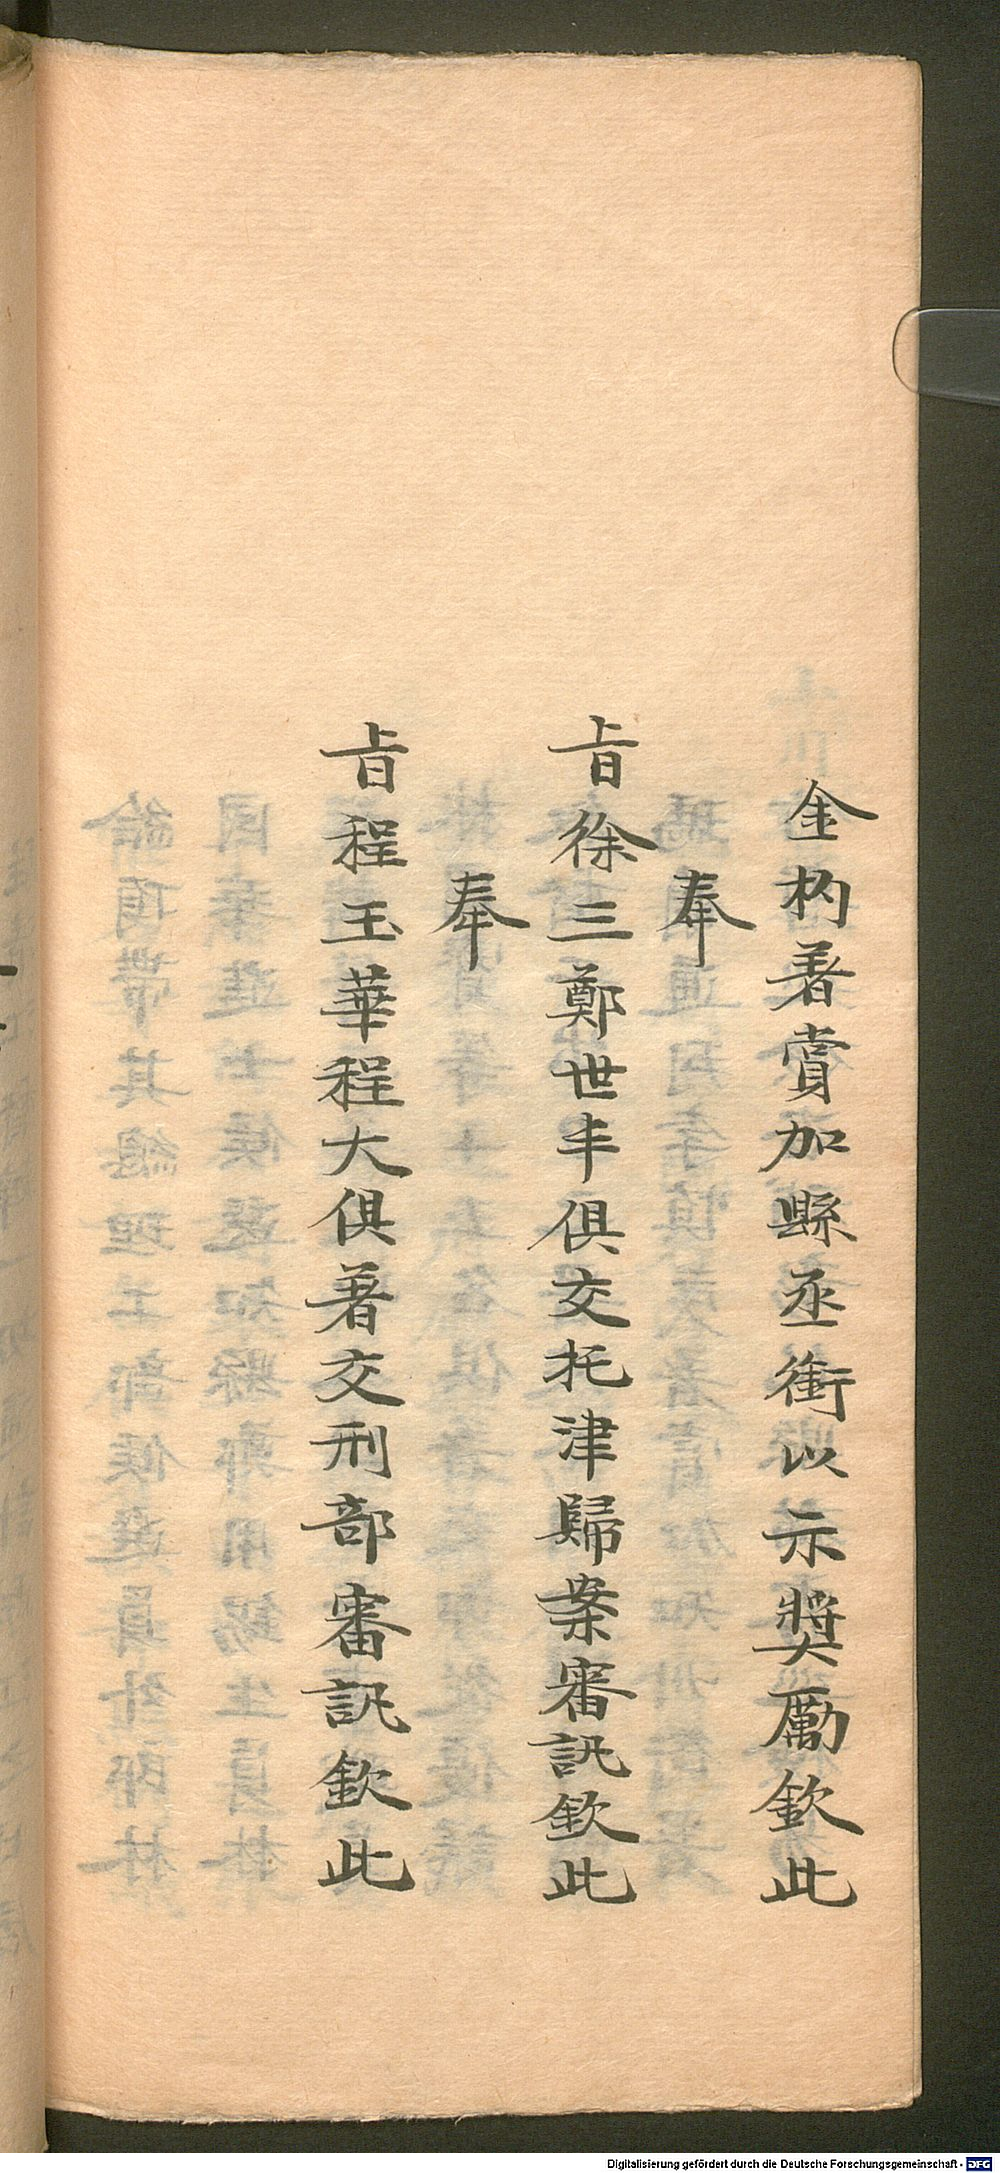 金杓著賞加縣丞銜以示獎勵欽此
奉
旨徐三鄭世丰俱交托津歸案審訊欽此
奉
旨程玉華程大俱著交刑部審訊欽此
Digitalisierung gefördert durch die Deutsche Forschungsgemeinschaft - DFG